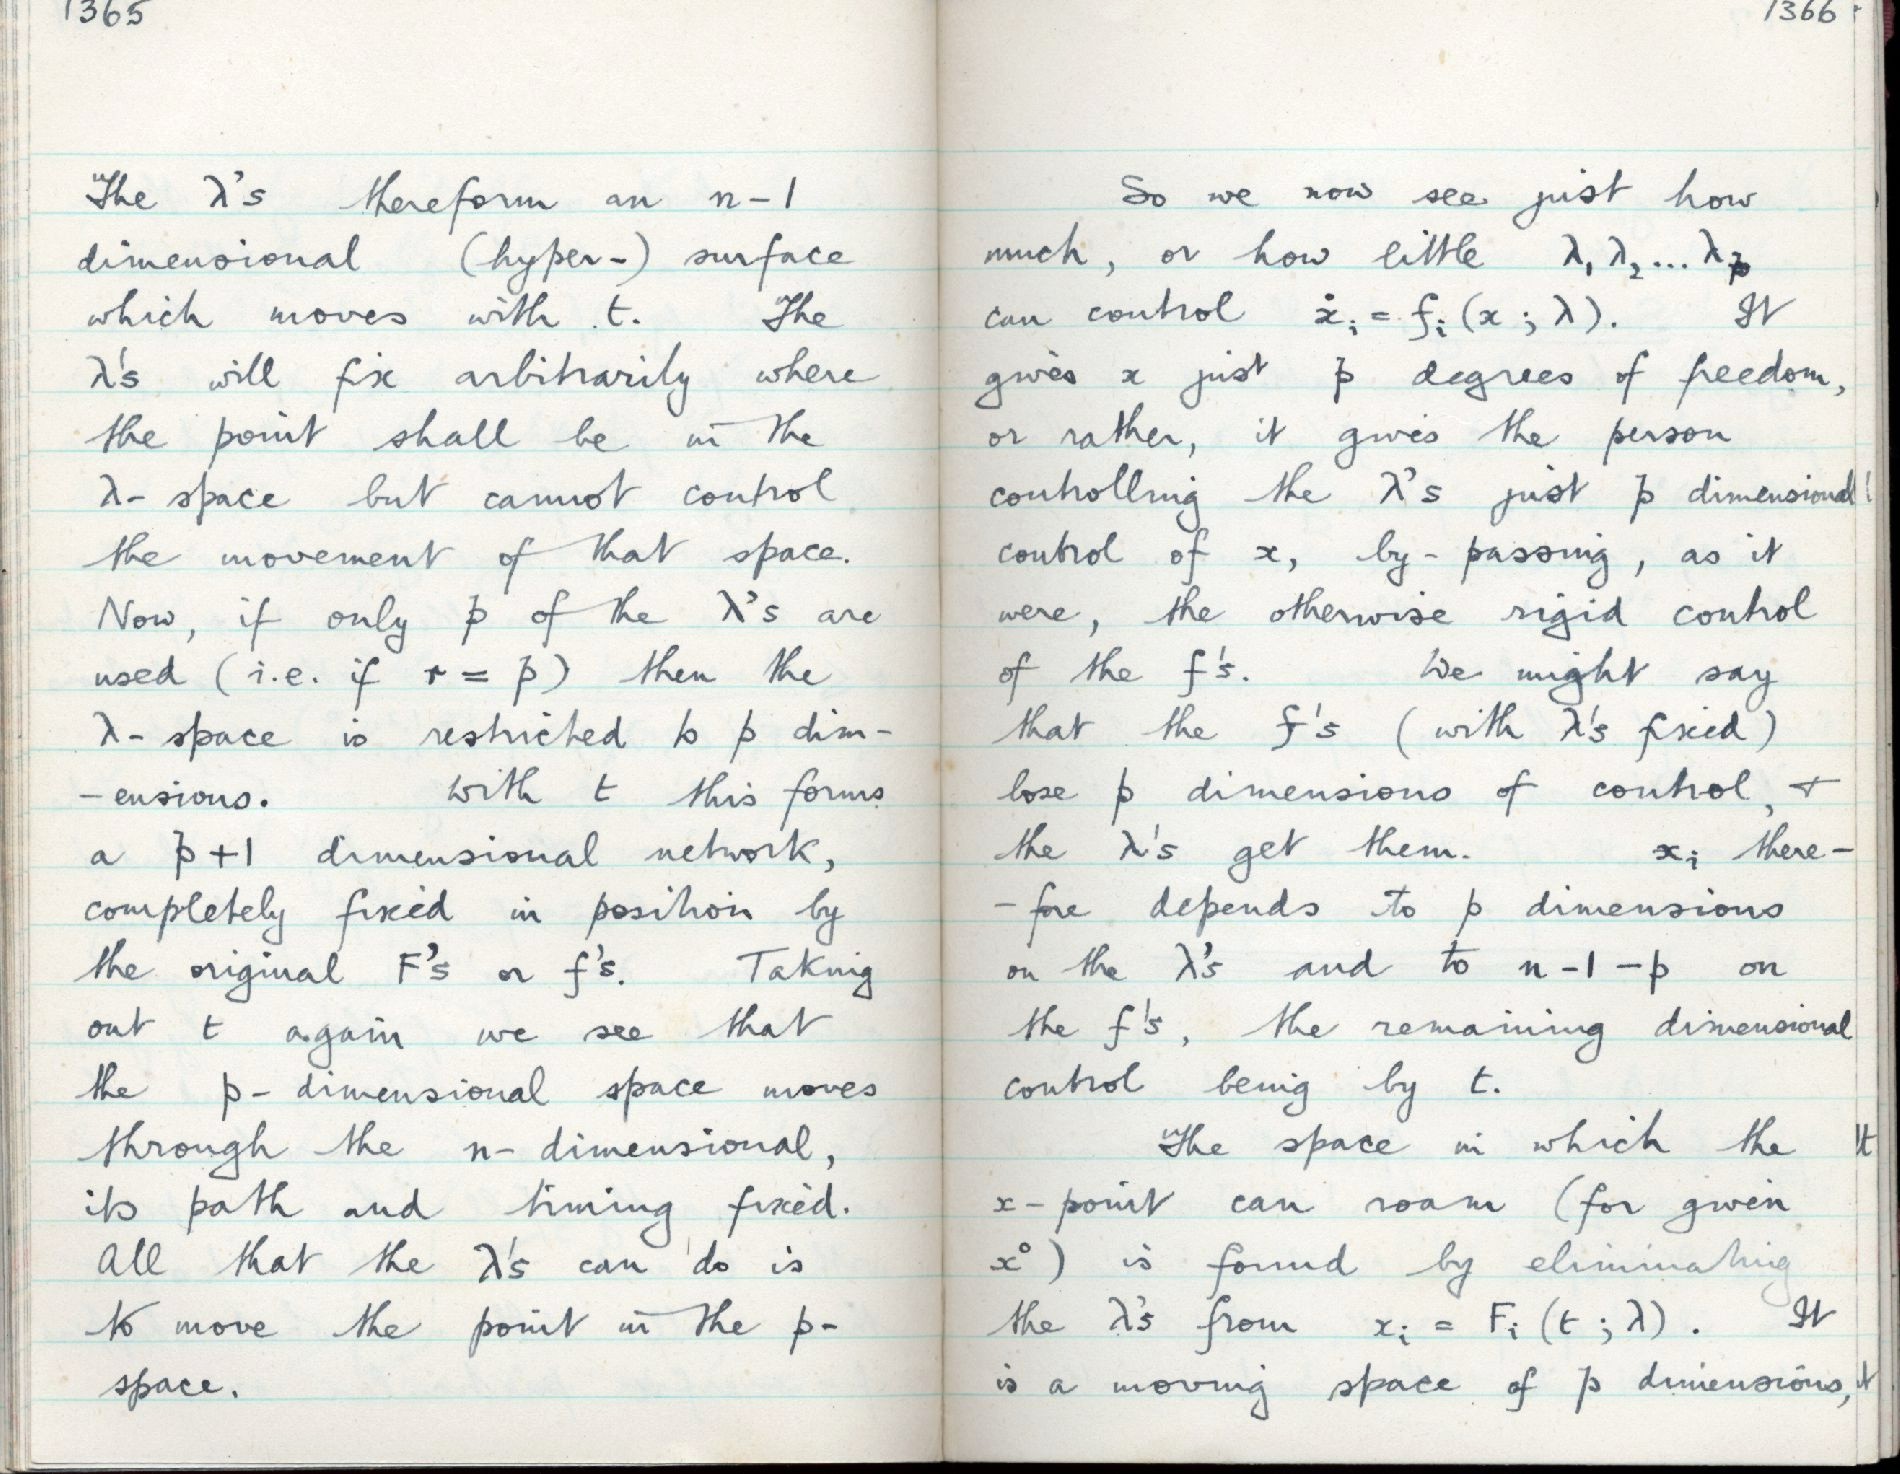 1365
The λ's thereform an n-1
dimensional (hyper-) surface
which moves with t. The
λ's will fix arbitrarily where
the point shall be in the
λ- space but cannot control
the movement of that space.
Now, if only p of the λ's are
used (i.e. if r = p) then the
λ- space is restricted to p dim-
-ensions. With t this forms
a p+1 dimensional network,
completely fixed in position by
the original F's or f's. Taking
out t again we see that
the p- dimensional space moves
through the n- dimensional,
its path and timing fixed.
All that the λ's can do is
to move the point in the p-
space.
1366
So we now see just how
much, or how little λ₁ λ₂ ... λₚ
can control ẋᵢ = fᵢ (x ; λ). It
gives x just p degrees of freedom,
or rather, it gives the person
controlling the λ's just p dimensional
control of x, by-passing, as it
were, the otherwise rigid control
of the f's. We might say
that the f's (with λ's fixed)
lose p dimensions of control, +
the λ's get them. xᵢ there-
-fore depends to p dimensions
on the λ's and to n-1-p on
the f's, the remaining dimensional
control being by t.
The space in which the
x-point can roam (for given
x°) is found by eliminating
the λ's from xᵢ = Fᵢ (t ; λ). It
is a moving space of p dimensions,